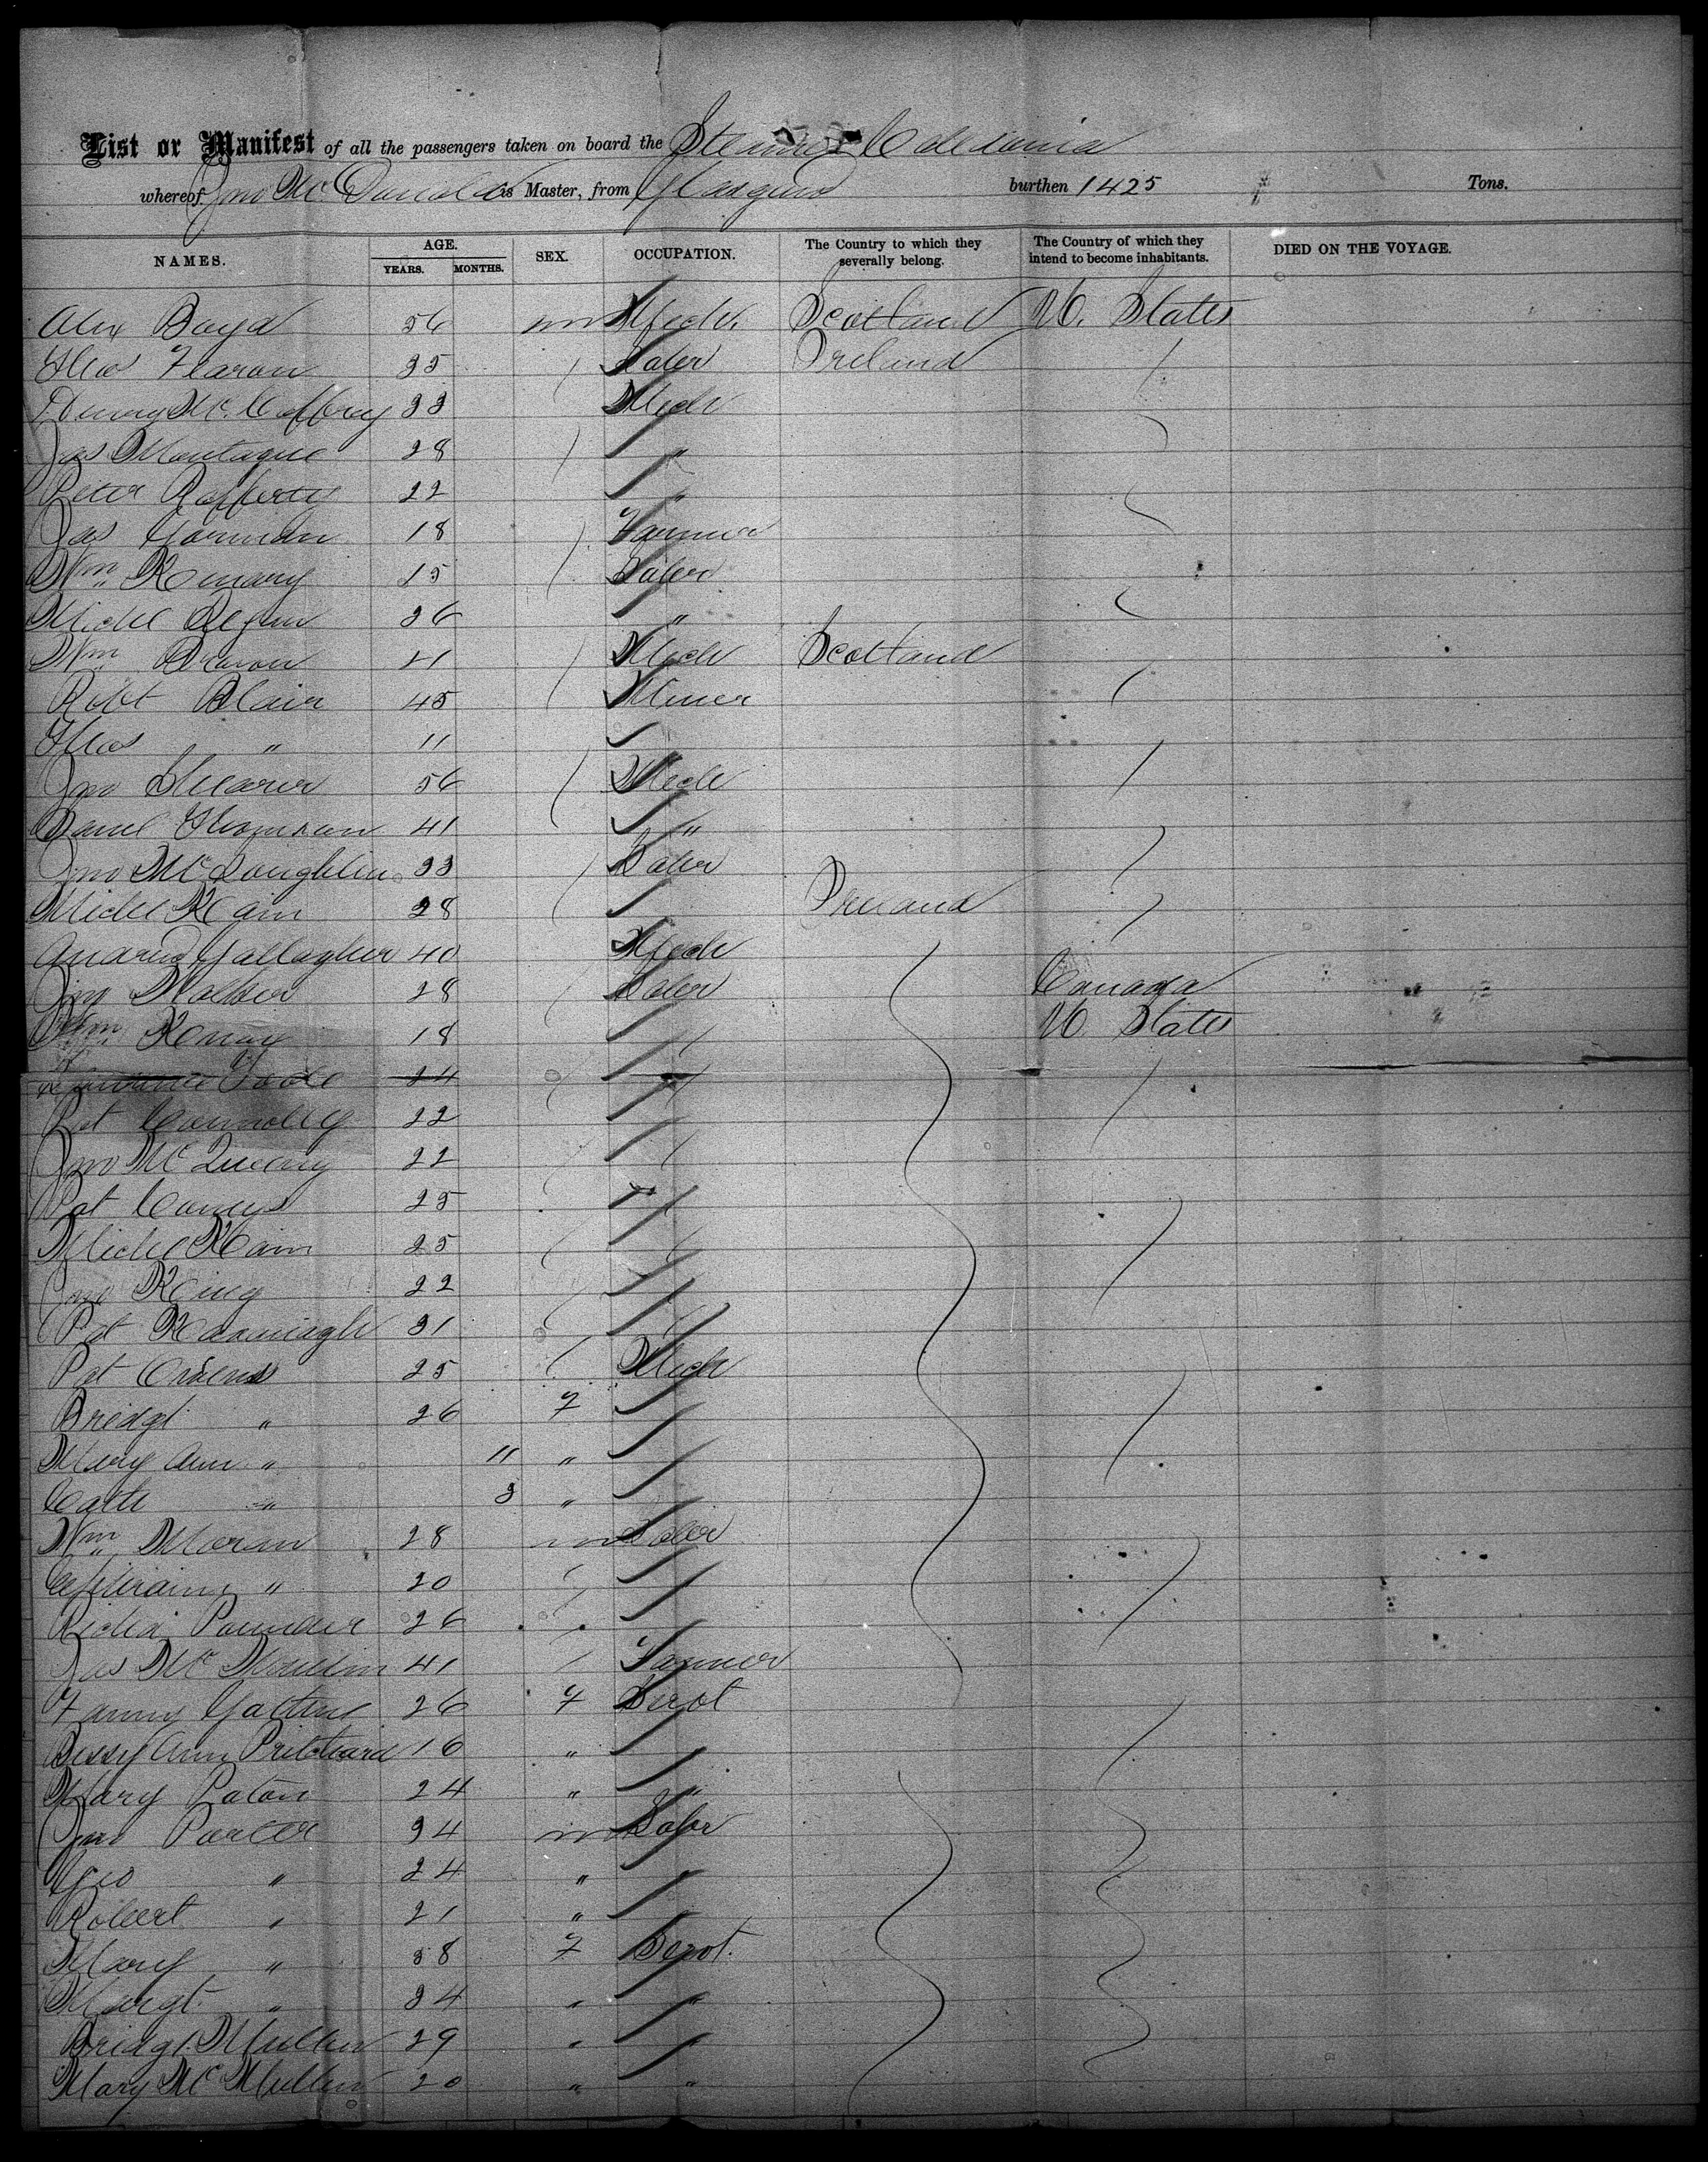 List or Manifest of all the passengers taken on board the Steamer Caledonia
whereof Jno McDonald is Master, from Glasgow burthen 1425 Tons.
NAMES. AGE. YEARS. MONTHS. SEX. OCCUPATION. The Country to which they severally belong. The Country of which they intend to become inhabitants. DIED ON THE VOYAGE.
Alex Boyd 56 m Mech. Scotland U. States
Thos 35 Labr Ireland
Henry McCaffrey 33 Mech
Jas Montague 28 "
Peter Rafferty 22 "
Jas Gorman 18 Farmer
Wm 15 Labr
Michl Regan 26 "
Wm Brown 21 Mech Scotland
Robt Blair 45 Miner
Thos " 11
Jno Shearer 56 Mech
Daniel Thomson 41 "
Jno McLoughlin 33 Labr
Michl Kain 28 Ireland
Andrew Gallagher 40 Mech
Jno Walker 28 Labr Canada
Wm 18 U. States
Toole 24
Pat Connolly 22
Jno McQueeny 22
Pat 25
Michl Kain 25
Jno King 22
Pat Kavanagh 31
Pat Owens 25 Mech
Bridgt " 26 F
Mary Ann " 11 "
Cath " 3 "
Wm Moran 28 m Labr
Ephraim " 20
Richd Pounder 26
Jas Mc 41 Farmer
Fanny 26 F Servt
Bessy Ann Pritchard 16 "
Mary Paton 24 " "
Jno Porter 34 m Labr
Geo " 24 " "
Robert " 21 "
Mary " 58 F Servt.
Margt. " 34 " "
Bridgt. Mullen 29 "
Mary McMullen 20 " "